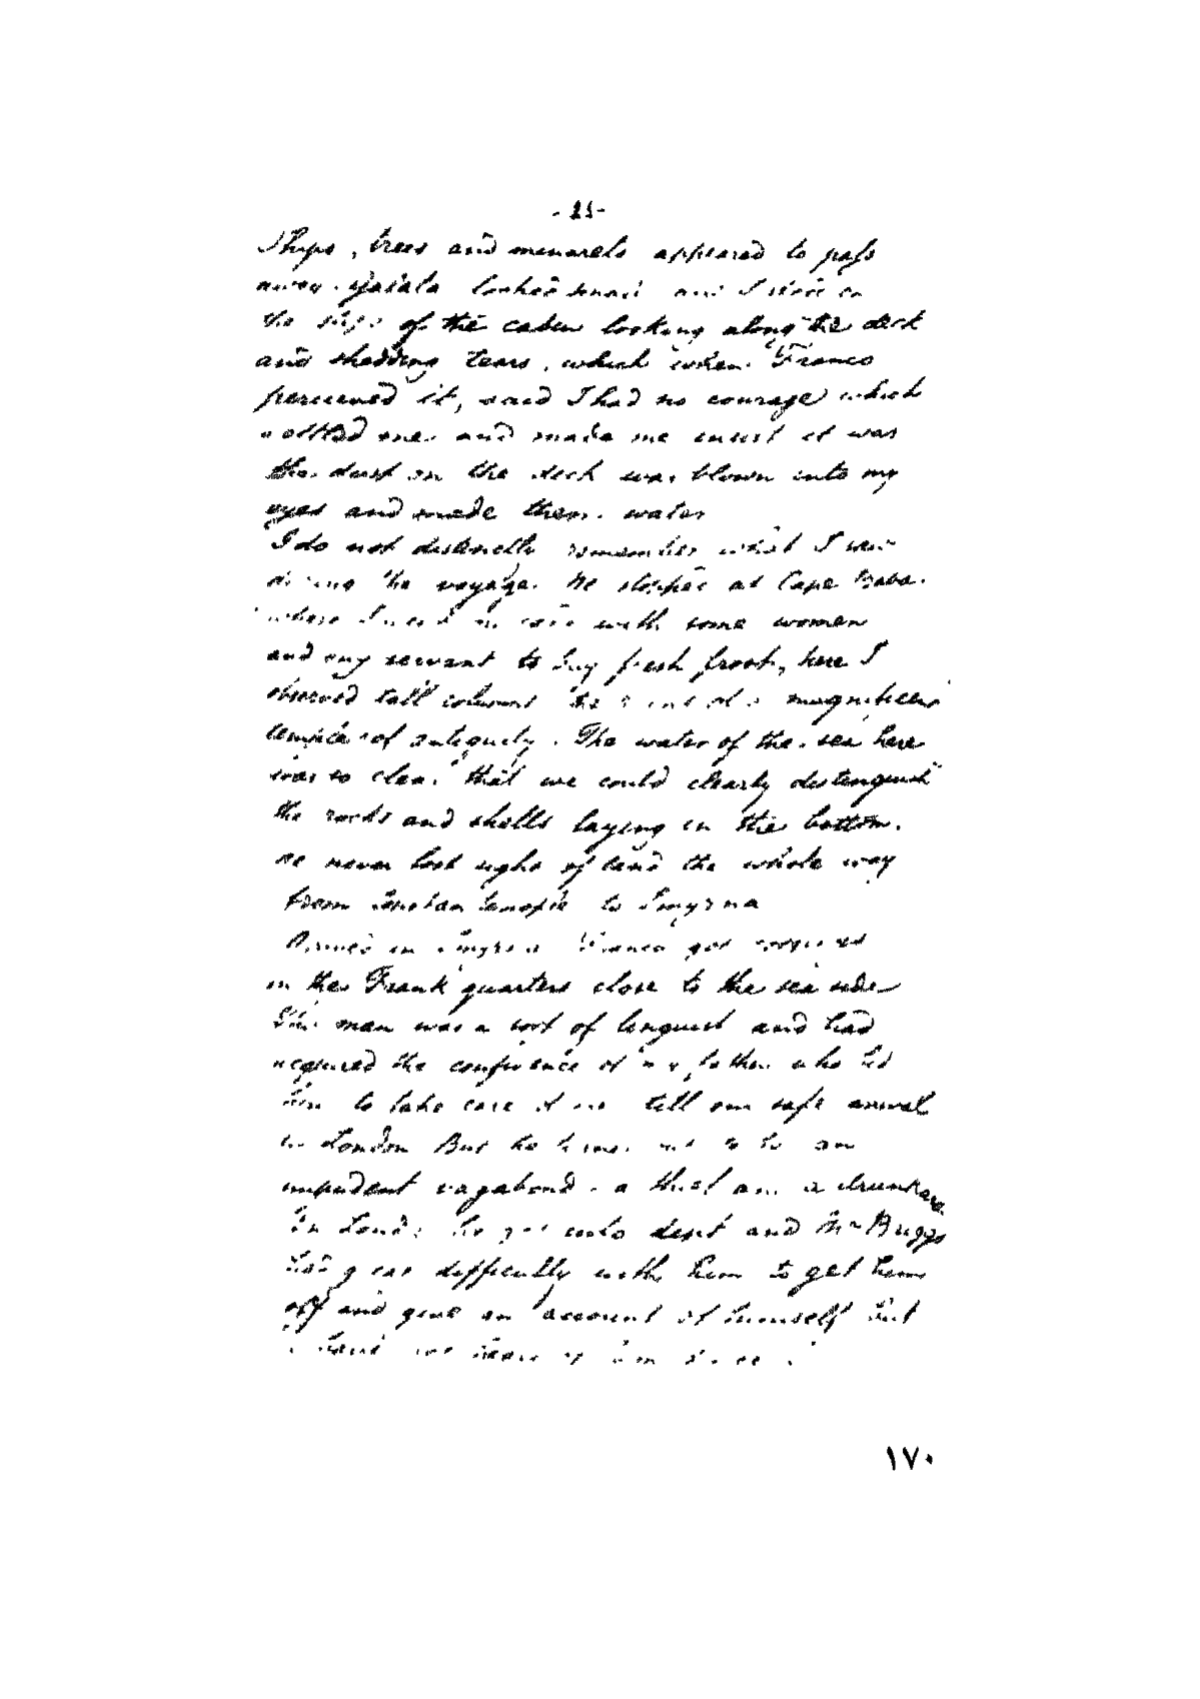 Ships, trees and menarets appeared to pass
away. Galata looked small and I stood on
the steps of the cabin looking along the deck
and shedding tears, which when Franco
percieved it, said I had no courage which
me and made me insist it was
the dust on the deck was blown into my
eyes and made them water
I do not distinctly remember what I saw
during the voyage. We stopped at Cape Baba.
where I went with some women
and my servant to buy fresh froot, here I
observed tall columns the of a magnificent
temple of antiquety. The water of the sea here
was so clear that we could clearly distenguish
the rocks and shells laying in the bottom.
we never lost sight of land the whole way
from to Smyrna
Arrived in Smyrna Franco got
in the Frank quarters close to the sea side
This man was a sort of linguist and had
acquired the confidence of my father who
him to take care of me till our safe arrival
in London But he to be an
impudent vagabond a thief and a drunkard.
In London he got into dept and Mr Buggs
had great difficulty with him to get him
off and give an account of himself but
I have not since
١٧٠